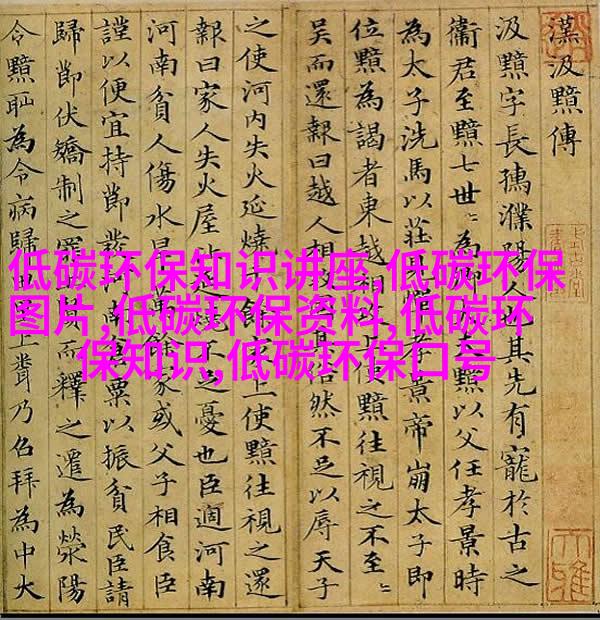 漢汲黯傳
汲黯字長孺濮陽人也其先有寵於古之
衞君至黯七世〻為卿大夫黯以父任孝景時
為太子洗馬以莊見憚孝景帝崩太子即
位黯為謁者東越相攻上使黯往視之不至〻
吳而還報曰越人相攻固其俗然不足以辱天子
之使河內失火延燒千餘家上使黯往視之還
報曰家人失火屋比延燒不足憂也臣適河南
河南貧人傷水旱萬餘家或父子相食臣
謹以便宜持節發河南倉粟以振貧民臣請
歸節伏矯制之罪上賢而釋之遷為滎陽
令黯恥為令病歸田里上聞乃召拜為中大
低碳环保知识讲座,低碳环保
图片,低碳环保资料,低碳环
保知识,低碳环保口号